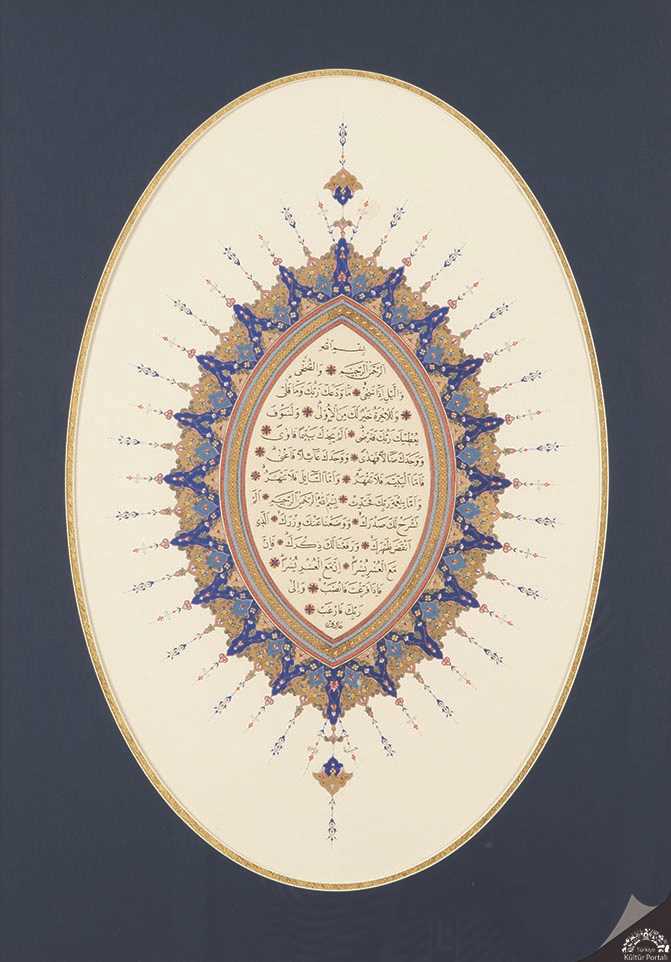 بسم الله
الرحمن الرحيم والضحى
والليل إذا سجى ما ودعك ربك وما قلى
وللآخرة خير لك من الأولى ولسوف
يعطيك ربك فترضى ألم يجدك يتيما فآوى
ووجدك ضالا فهدى ووجدك عائلا فأغنى
فأما اليتيم فلا تقهر وأما السائل فلا تنهر
وأما بنعمة ربك فحدث بسم الله الرحمن الرحيم ألم
نشرح لك صدرك ووضعنا عنك وزرك الذي
أنقض ظهرك ورفعنا لك ذكرك فإن
مع العسر يسرا إن مع العسر يسرا
فإذا فرغت فانصب وإلى
ربك فارغب
Türkiye
Kültür Portalı